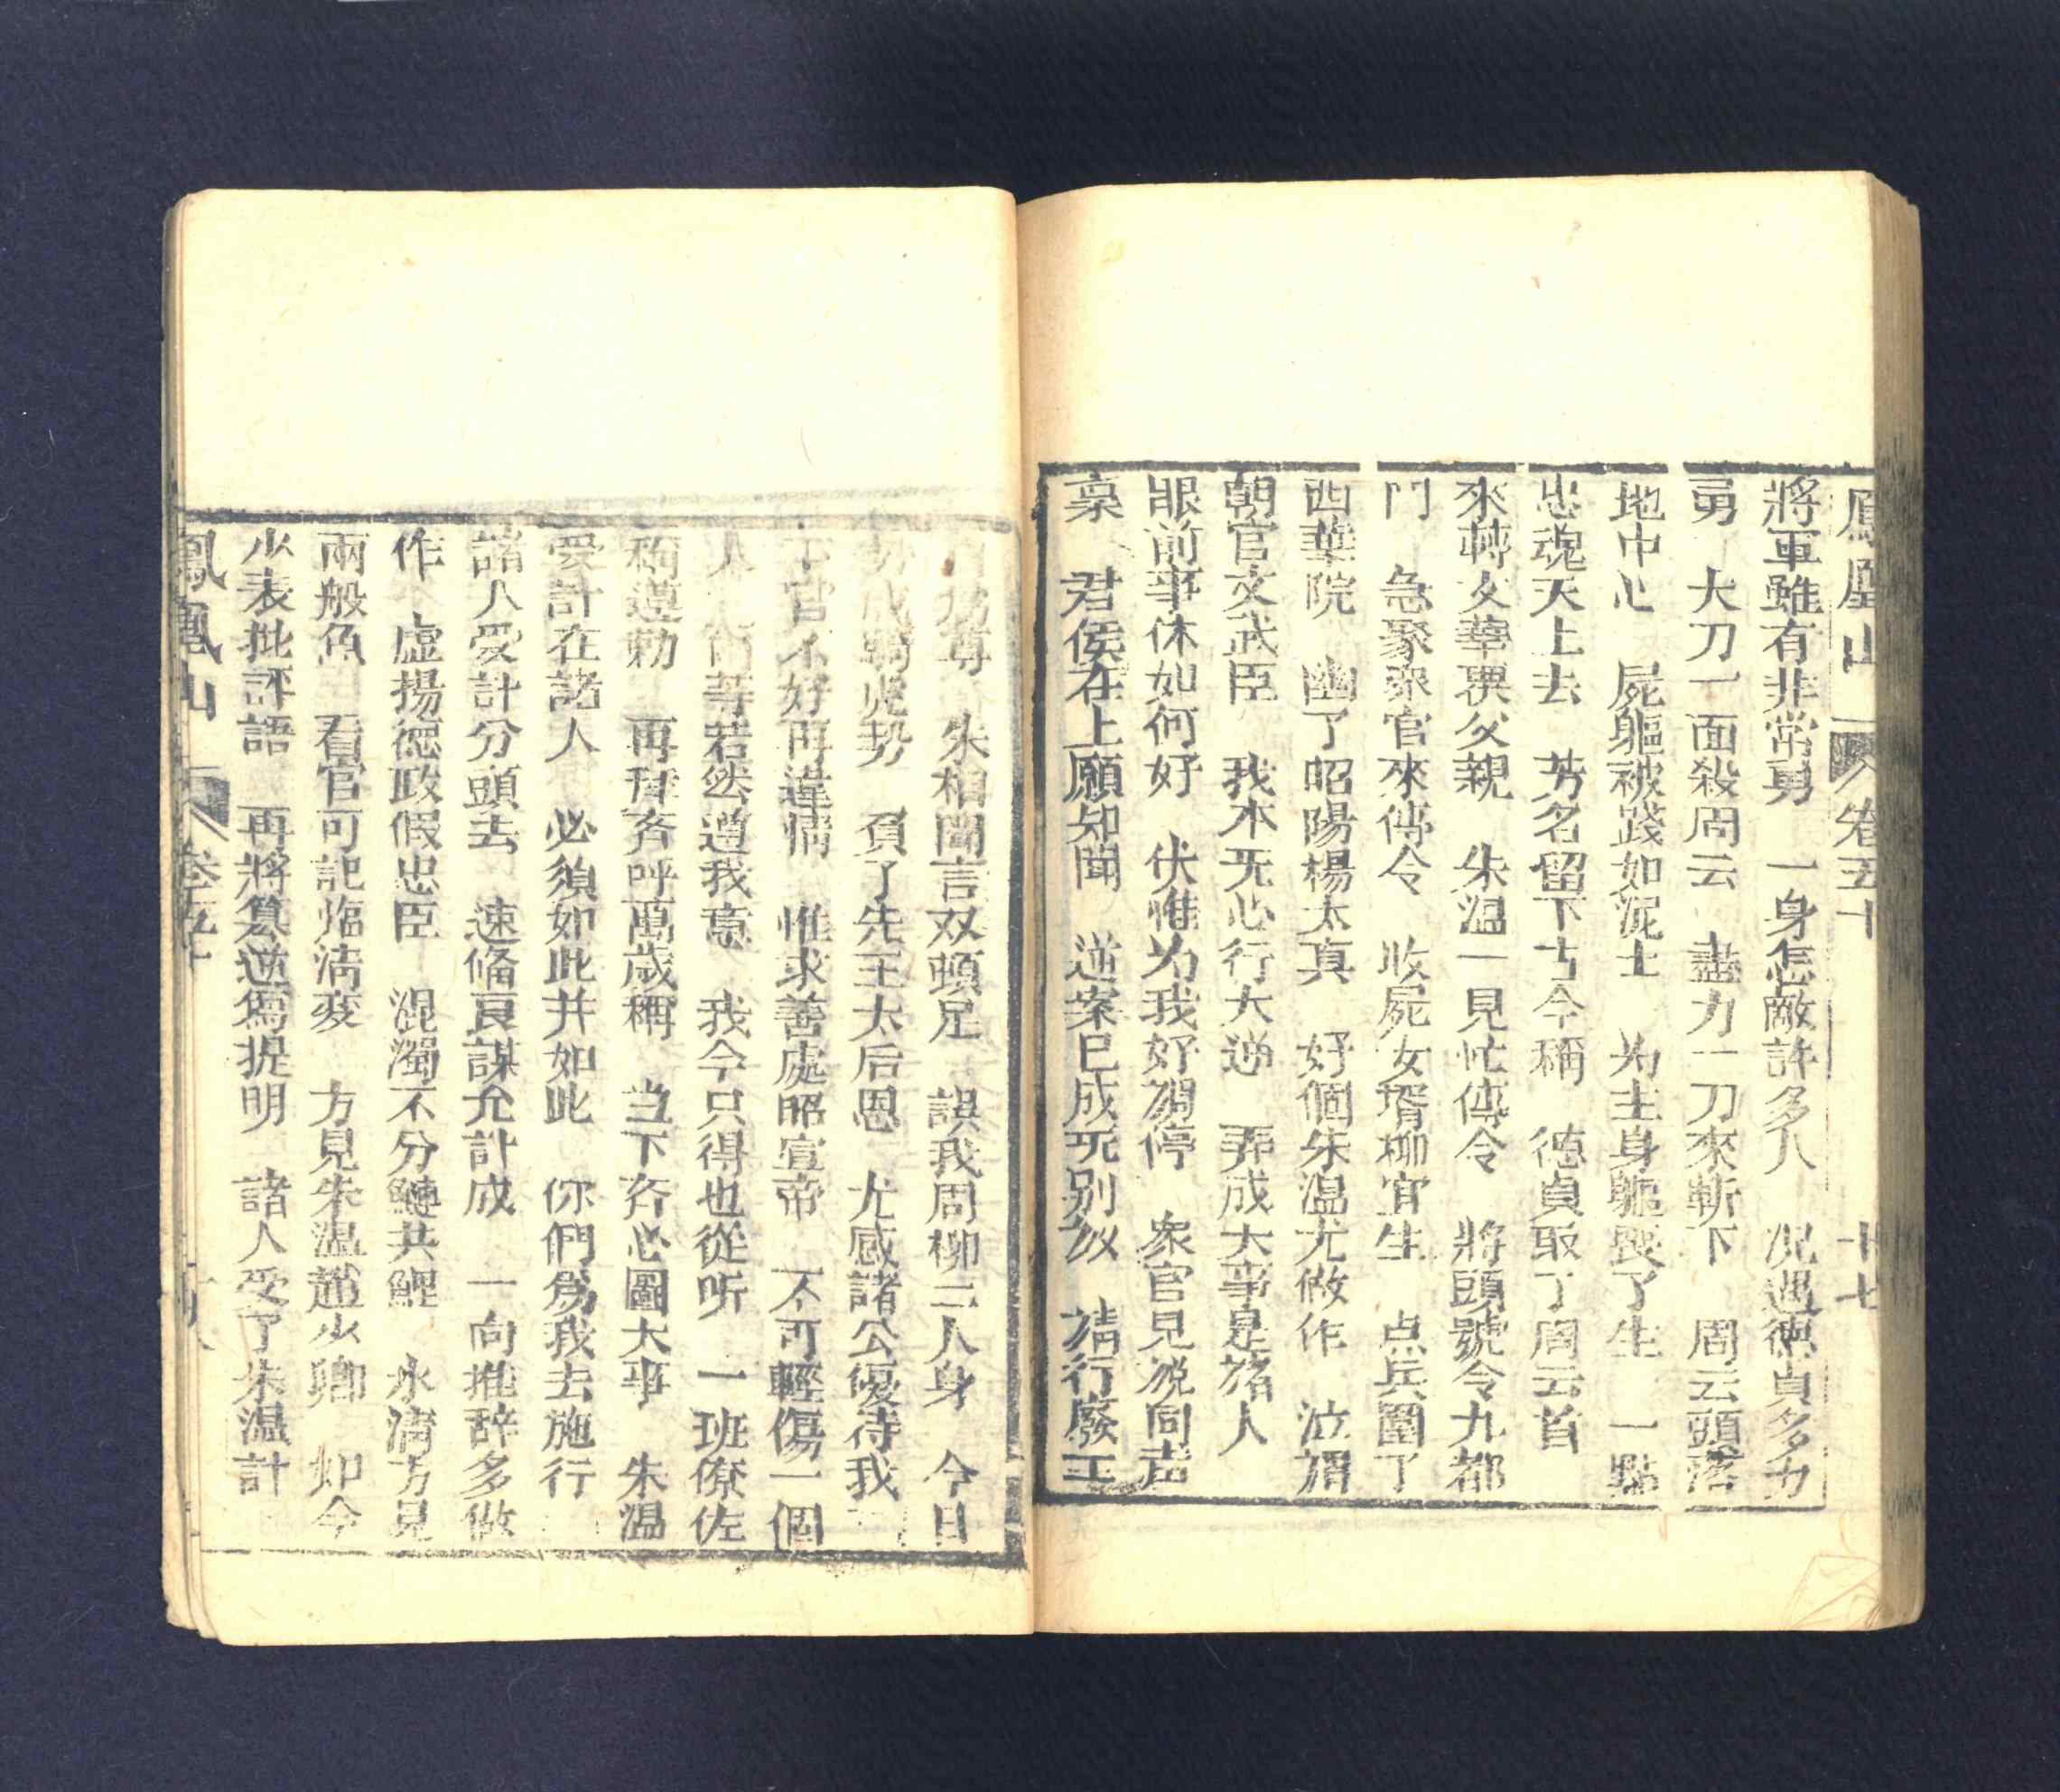 鳳凰山 卷五十 十七
將軍雖有非常勇 一身怎敵許多人 况遇德貞多力
勇 大刀一面殺周云 盡力一刀來斬下 周云頭落
地中心 屍軀被踐如泥土 为主身軀喪了生 一點
忠魂天上去 芳名留下古今稱 德貞取了周云首
來轉文華禀父親 朱温一見忙傳令 將頭號令九都
門 急聚衆官來傳令 收屍女壻柳宜生 点兵圍了
西華院 幽了昭陽楊太真 好個朱温尤做作 泣
朝官文武臣 我本无心行大逆 弄成大事是諸人
眼前事体如何好 伏惟为我好調停 衆官見説同声
禀 君侯在上願知聞 逆案已成无别议 請行廢王
尊 朱相聞言双頓足 誤我周柳二人身 今日
势成騎虎势 負了先王太后恩 尤感諸公優待我
不好再違情 惟求善處昭宣帝 不可輕傷一個
人 等若然遵我意 我今只得也從听 一班僚佐
稱遵勅 再拜齐呼萬歲稱 当下齐心圖大事 朱温
受計在諸人 必須如此并如此 你們爲我去施行
諸人受計分頭去 速俻良謀允計成 一向推辞多做
作 虚揚德政假忠臣 混濁不分鰱共鯉 水清方見
兩般魚 看官可記臨清变 方見朱温趙少卿 如今
少表批評語 再將篡逆爲提明 諸人受了朱温計
鳳凰山 卷五十